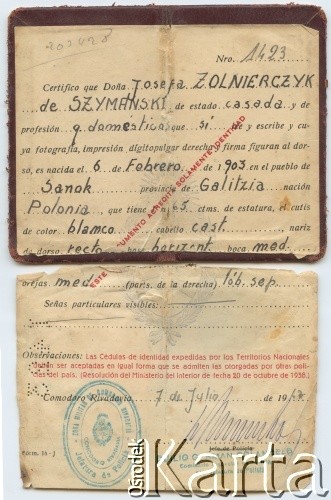 203628
Nro. 1423
Certifico que Doña Josefa ZOLNIERCZYK
de SZYMAŃSKI de estado casada y de
profesión q. domestico que sí lee y escribe y cu-
ya fotografía, impresión dígitopulgar derecha y firma figuran al dor-
so, es nacida el 6 de Febrero de 1903 en el pueblo de
Sanok provincia de Galitzia nación
Polonia, que tiene 1 m 65 ctms. de estatura, el cutis
de color blanco cabello cast. nariz
de dorso recto bas horizont. boca med.
UMENTO ACREDITA SOLAMENTE IDENTIDAD
ESTE
orejas med (parts. de la derecha) lób. sep.
Señas particulares visibles:
Observaciones: Las Cédulas de identidad expedidas por los Territorios Nacionales
deben ser aceptadas en igual forma que se admiten las otorgadas por otras poli-
cías del país. (Resolución del Ministerio del Interior de fecha 20 de octubre de 1938.)
Comodoro Rivadavia, 7 de Julio de 19
Jefatura de Policía
Jefe de Policía
Form. 14-J
ośrodek
KARTA